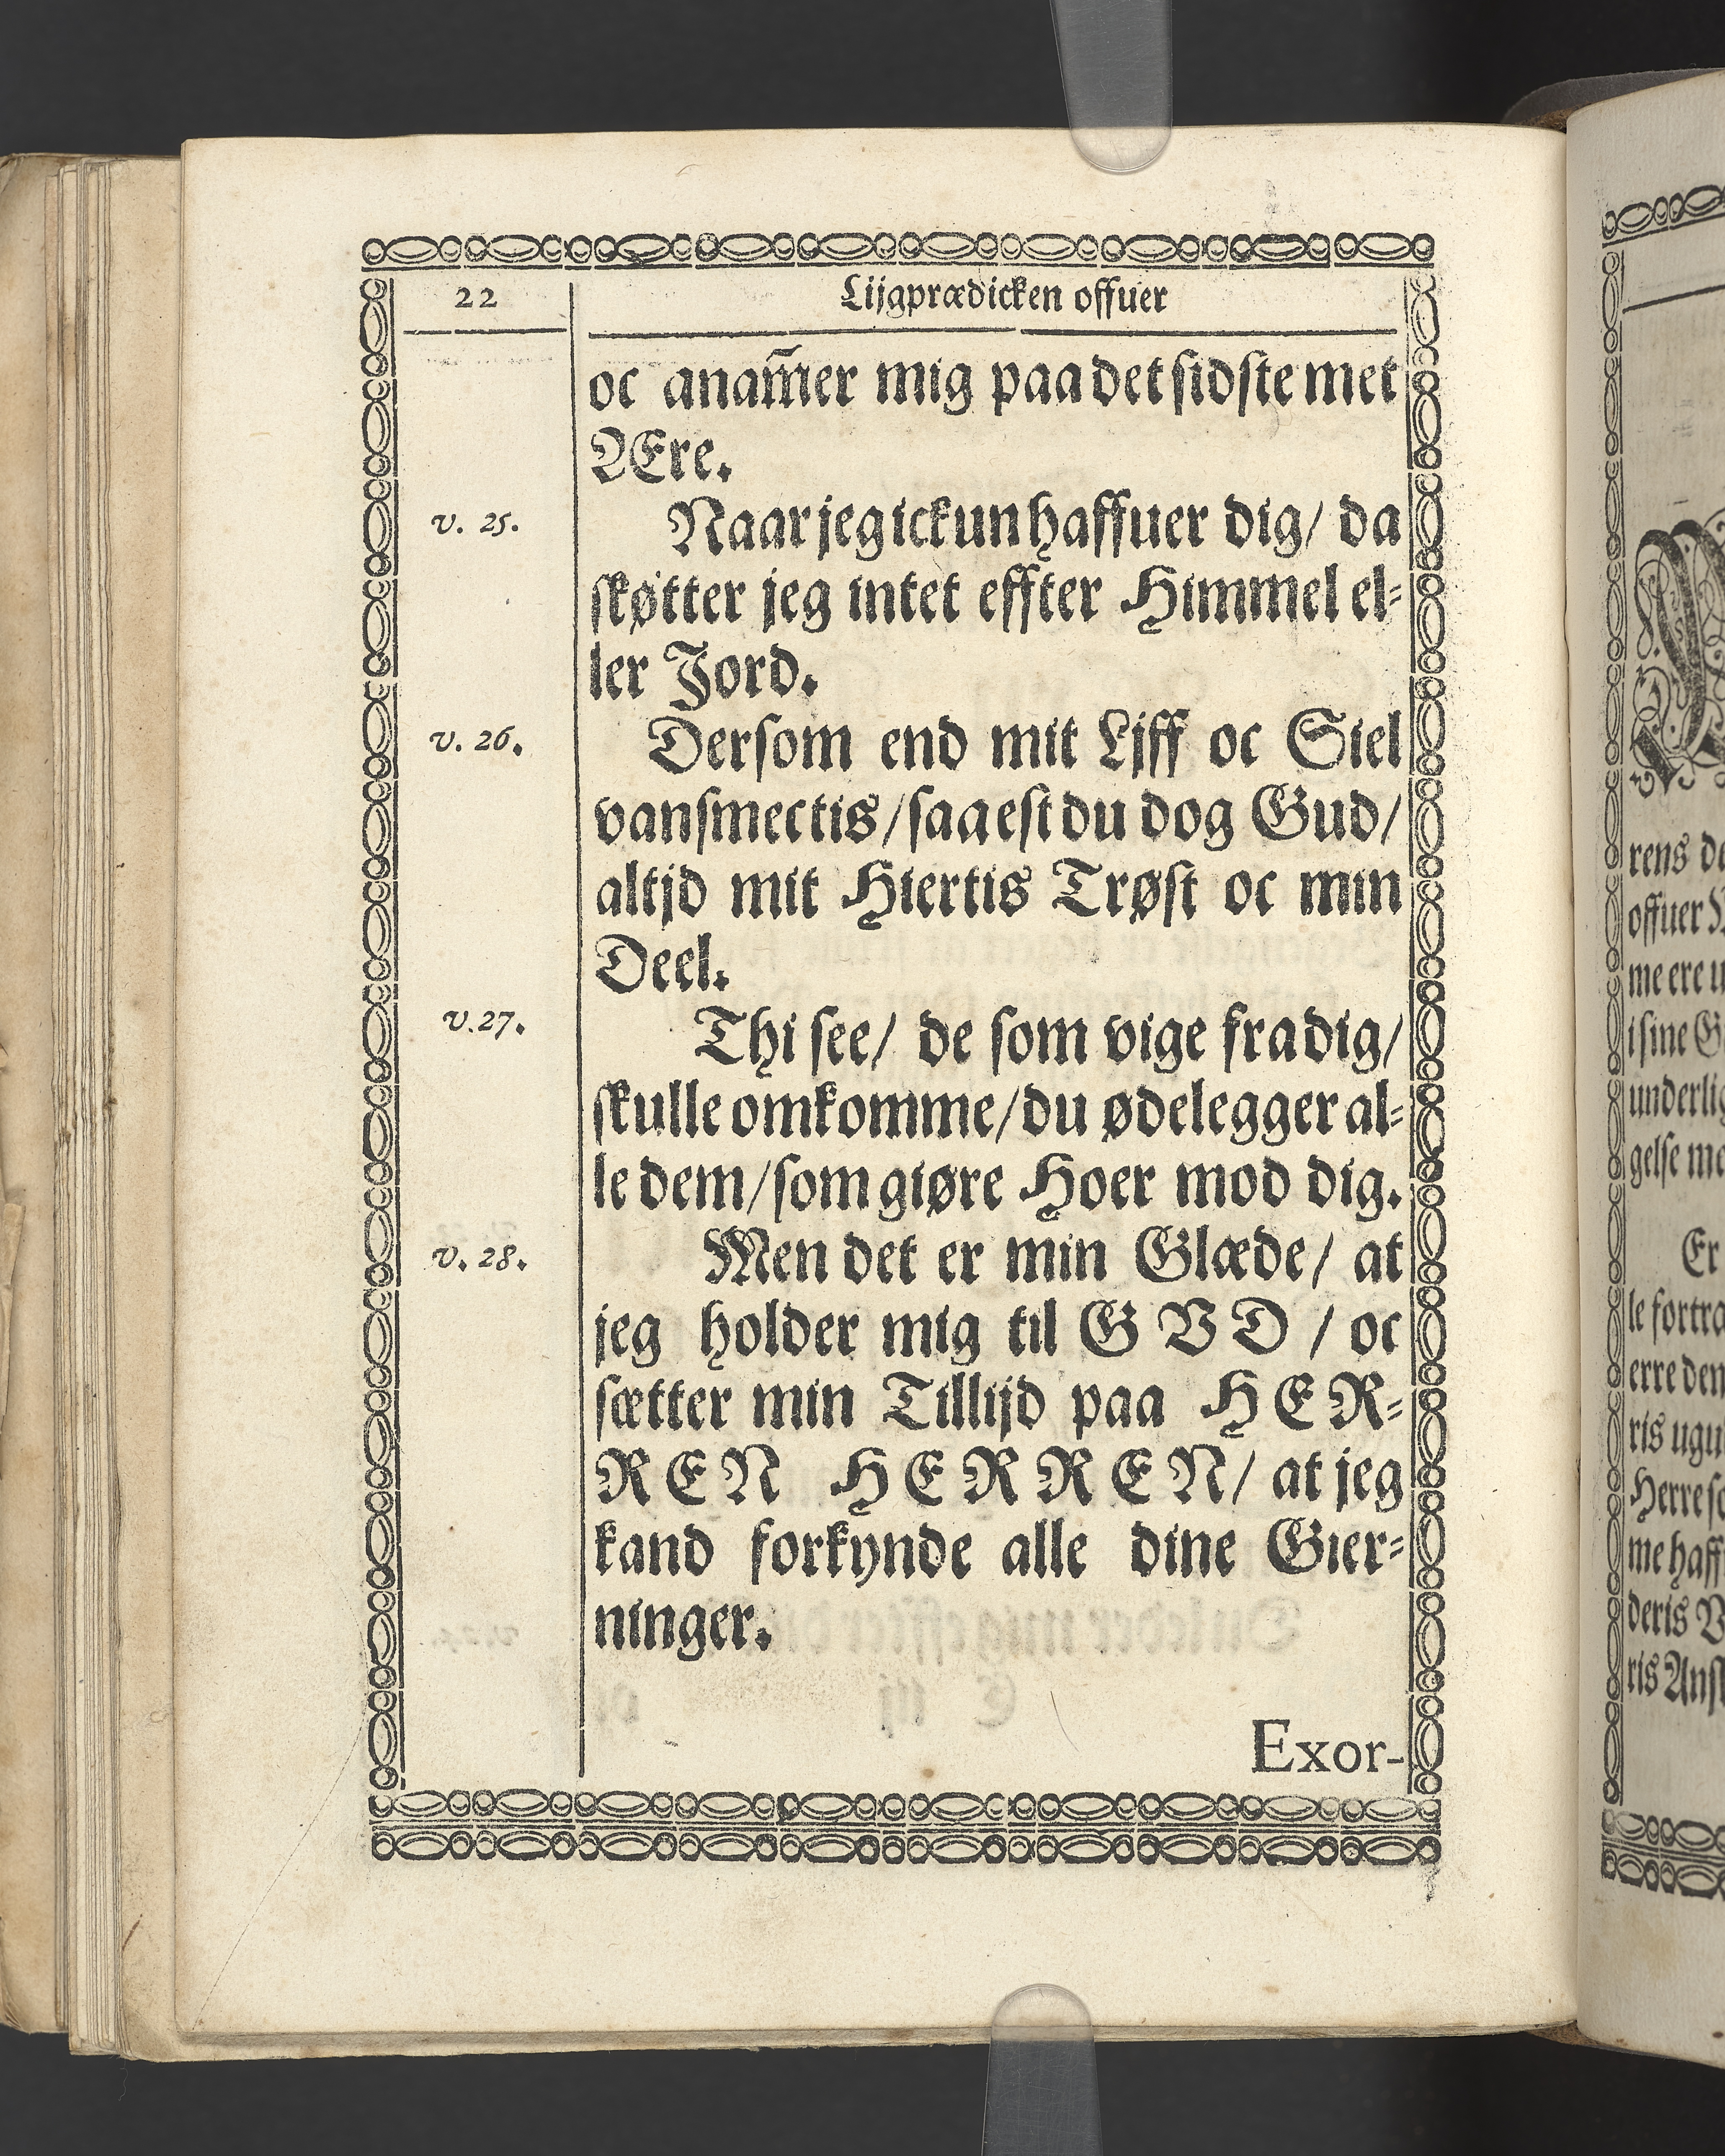 22
Lijgprædicken offuer
oc anam̃er mig paa det sidste met
Ære.
v. 25.
Naar jeg ickun haffuer dig/ da
skøtter jeg intet effter Himmel el-
ler Jord.
v. 26.
Dersom end mit Ljff oc Siel
vansmectis/ saa est du dog Gud/
altjd mit Hiertis Trøst oc min
Deel.
v. 27.
Thi see/ de som vige fra dig/
skulle omkomme/ du ødelegger al-
le dem/ som giøre Hoer mod dig.
v. 28.
Men det er min Glæde/ at
jeg holder mig til GVD / oc
sætter min Tillijd paa HER-
REN HERREN/ at jeg
kand forkynde alle dine Gier-
ninger.
Exor-
rens
offuer
me ere
i sine
underlig
gelse
Er
le
erre den
ris
Herre
me
deris
ris